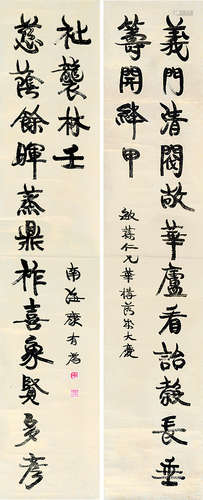 義門清閥敞華廬看詒穀長垂
籌開絳甲
仁兄華構落成大慶
慈蔭餘暉蒸鼎祚喜象賢多彥
祉襲林壬
南海康有為